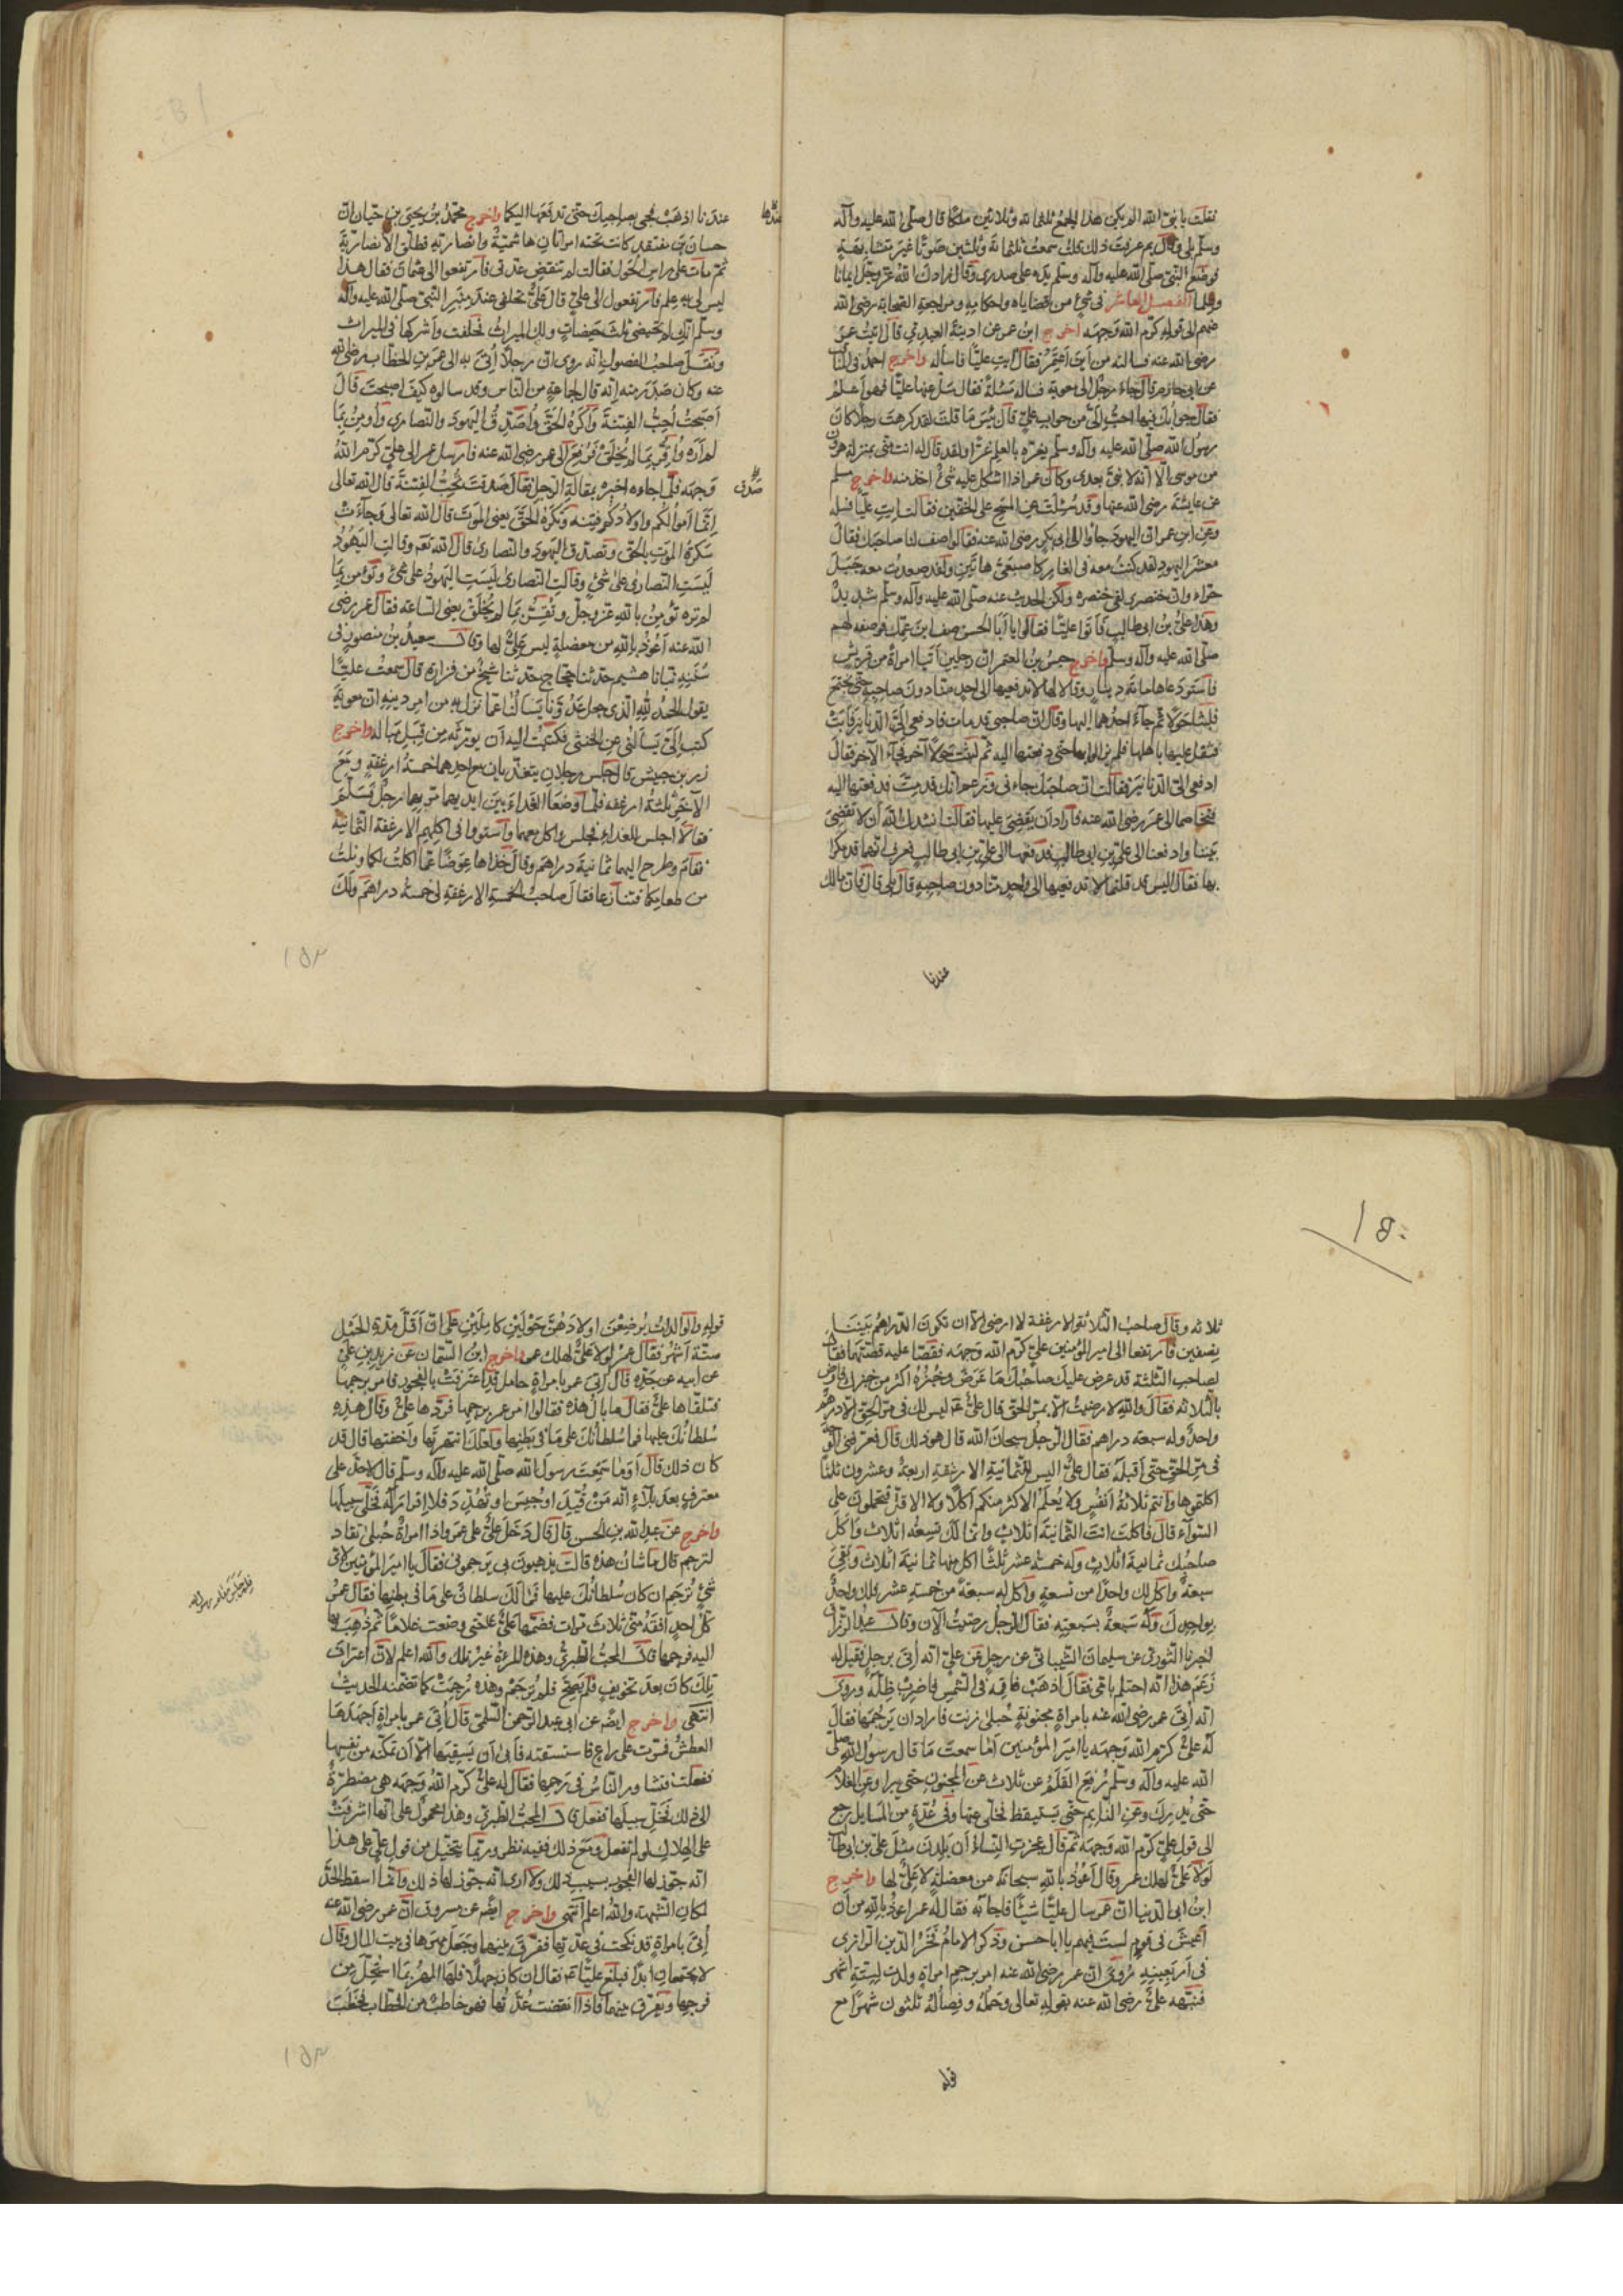 فقلت يا نبى الله الم يكن هذا الجمع ثلثمائه وثلاثين ملكا قال صلى الله عليه وآله
وسلم بلى وقال بم عرفت ذلك قلت سمعت ثلثمائة وثلثين صوتا غير متشابهة
فوضع النبى صلى الله عليه وآله وسلم يده على صدرى وقال زادك الله عز وجل ايمانا
وعلما الفصل العاشر فى شئ من قضاياه واحكامه ومراجعة الصحابة رضى الله
عنهم الى قوله كرم الله وجهه اخرج ابن عمر عن اذينة العبدى قال اتيت عمر
رضى الله عنه فسالته من اين اعتمر فقال ايت عليا فاساله واخرج احمد فى المناقب
عن ابى حازم قال جاء رجل الى معوية فساله مسئلة فقال سل عنها عليا فهو اعلم
فقال جوابك فيها احب الى من جواب على قال بئس ما قلت لقد كرهت رجلا كان
رسول الله صلى الله عليه وآله وسلم يغره بالعلم غرا ولقد قال له انت منى بمنزلة هرون
من موسى الا انه لا نبى بعدى وكان عمر اذا اشكل عليه شئ اخذ منه واخرج مسلم
عن عايشة رضى الله عنها وقد سئلت عن المسح على الخفين فقالت ايت عليا فسله
وعن ابن عمر ان اليهود جاؤا الى ابى بكر رضى الله عنه فقالوا صف لنا صاحبك فقال
معشر اليهود لقد كنت معه فى الغار كاصبعى هاتين ولقد صعدت معه جبل
حراء وان خنصرى لفى خنصره ولكن الحديث عنه صلى الله عليه وآله وسلم شديد
وهذا على بن ابى طالب فاتوا عليا فقالوا يا ابا الحسن صف ابن عمك فوصفه لهم
صلى الله عليه وآله وسلم واخرج حبيش بن المعتمر ان رجلين اتيا امراة من قريش
فاستودعاها مائة دينار وقالا لها لا تدفعيها الى احد منا دون صاحبه حتى نجتمع
فلبثا حولا ثم جاء احدهما اليها وقال ان صاحبى قد مات فادفعى الى الدنانير فابت
فثقل عليها باهلها فلم يزالوا بها حتى دفعتها اليه ثم لبثت حولا آخر فجاء الآخر فقال
ادفعى الى الدنانير فقالت ان صاحبك جاءنى وزعم انك قد مت فدفعتها اليه
فتخاصما الى عمر رضى الله عنه فاراد ان يقضى عليها فقالت انشدك الله ان لا تقضى
بيننا وادفعنا الى على بن ابى طالب فدفعها الى على بن ابى طالب فعرف انهما قد مكرا
بها فقال اليس قد قلتما لا تدفعيها الى واحد منا دون صاحبه قال بلى قال فان مالك
عندنا
عندنا اذهب فجئ بصاحبك حتى تدفعها اليكما واخرج محمد بن يحيى بن حيان ان
حسان بن منقذ كانت تحته امراتان هاشمية وانصارية فطلق الانصارية
ثم مات على راس الحول فقالت لم تنقض عدتى فارتفعوا الى عثمان فقال هذا
ليس لى به علم فارتفعوا الى على قال على تحلفى عند منبر النبى صلى الله عليه وآله
وسلم انك لم تحيضى ثلث حيضات ولك الميراث فحلفت واشركها فى الميراث
ونقل صاحب الفصول انه روى ان رجلا اتى به الى عمر بن الخطاب رضى الله
عنه وكان صدر منه انه قال لجماعة من الناس وقد سالوه كيف اصبحت قال
اصبحت احب الفتنة واكره الحق واصدق اليهود والنصارى واومن بما
لم اره واقر بما لم يخلق فرفع الى عمر رضى الله عنه فارسل عمر الى على كرم الله
وجهه فلما جاءه اخبره بمقالة الرجل فقال صدقت تحب الفتنة قال الله تعالى
صدق
انما اموالكم واولادكم فتنة وتكره الحق يعنى الموت قال الله تعالى وجاءت
سكرة الموت بالحق وتصدق اليهود والنصارى قال الله تعه وقالت اليهود
ليست النصارى على شئ وقالت النصارى ليست اليهود على شئ وتؤمن بما
لم تره تؤمن بالله عز وجل وتقر بما لم يخلق يعنى الساعة فقال عمر رضى
الله عنه اعوذ بالله من معضلة ليس على لها وقال سعيد بن منصور فى
سننه ثبانا هشيم حدثنا حجاج حدثنا شيخ من فزارة قال سمعت عليا
يقول الحمد لله الذى جعل عدونا يسالنا عما نزل به من امر دينه ان معوية
كتب الى يسالنى عن الخنثى فكتبت اليه ان يورثه من قبل مباله واخرج
زر بن حبيش قال جلس رجلان يتغديان مع احدهما خمسة ارغفة ومع
الآخر ثلثة ارغفه فلما وضعا الغداء بين ايديهما مر بهما رجل فسلم
فقالا اجلس للغداء فجلس واكل معهما واستوفوا فى اكلهم الارغفة الثمانية
فقام وطرح اليهما ثمانية دراهم وقال خذاها عوضا مما اكلت لكما ونلت
من طعامكما فتنازعا فقال صاحب الخمسة الارغفة لى خمسة دراهم ولك
١٥٢
١٥٠
ثلاثه وقال صاحب الثلاثة الارغفة لا ارضى الا ان تكون الدراهم بيننا
نصفين فارتفعا الى امير المؤمنين على كرم الله وجهه فقصا عليه قصتهما فقال
لصاحب الثلثة قد عرض عليك صاحبك ما عرض وخبزه اكثر من خبزك فارض
بالثلاثه فقال والله لا رضيت الا بمر الحق قال على ليس لك فى مر الحق الا درهم
واحد وله سبعه دراهم فقال الرجل سبحان الله قال هو ذلك قال فعرفنى الوجه
فى مر الحق حتى اقبله فقال على اليس الثمانية الارغفة اربعة وعشرون ثلثا
اكلتموها وانتم ثلاثة انفس ولا يعلم الاكثر منكم اكلا ولا الاقل فتحملون على
السواء قال فاكلت انت ثمانية اثلاث وانما لك تسعة اثلاث واكل
صاحبك ثمانية اثلاث وله خمسة عشر ثلثا اكل منها ثمانية اثلاث وبقى
سبعة واكل لك واحدا من تسعة واكل له سبعة من خمسة عشر فلك واحد
بواحدك وله سبعة بسبعته فقال الرجل رضيت الآن وقال عبد الرزاق
اخبرنا الثورى عن سليمان الشيبانى عن رجل عن على انه اتى برجل فقيل له
زعم هذا انه احتلم بامى فقال اذهب فاقمه فى الشمس فاضرب ظله وروى
انه اتى عمر رضى الله عنه بامراة مجنونة حبلى زنت فاراد ان يرجمها فقال
له على كرم الله وجهه يا امير المؤمنين اما سمعت ما قال رسول الله صلى
الله عليه وآله وسلم رفع القلم عن ثلاث عن المجنون حتى يبرا وعن الغلام
حتى يدرك وعن النايم حتى يستيقظ فخلى عنها وفى عدة من المسايل رجع
الى قول على كرم الله وجهه ثم قال عجزت النساء ان يلدن مثل على بن ابى طالب
لولا على لهلك عمر وقال اعوذ بالله سبحانه من معضلة لا على لها واخرج
ابن ابى الدنيا ان عمر سال عليا شيئا فاجابه فقال له عمر اعوذ بالله من ان
اعيش فى قوم لست فيهم يا ابا حسن وذكر الامام فخر الدين الرازى
فى اربعينه روى ان عمر رضى الله عنه امر برجم امراة ولدت لستة اشهر
فنبهه على رضى الله عنه بقوله تعالى وحمله وفصاله ثلثون شهرا مع
قوله
قوله والوالدات يرضعن اولادهن حولين كاملين على ان اقل مدة الحمل
ستة اشهر فقال عمر لولا على لهلك عمر واخرج ابن السمان عن زيد بن على
عن ابيه عن جده قال اتى عمر بامراة حامل قد اعترفت بالفجور فامر برجمها
فتلقاها على فقال ما بال هذه فقالوا امر عمر برجمها فردها على وقال هذه
سلطانك عليها فما سلطانك على ما فى بطنها ولعلك انتهرتها واخفتها قال قد
كان ذلك قال اوما سمعت رسول الله صلى الله عليه وآله وسلم قال لا حد على
معترف بعد بلاء انه من قيد او حبس او تهدد فلا اقرار له فخلى سبيلها
واخرج عن عبد الله بن الحسن قال قال دخل على على عمر واذا امراة حبلى تقاد
لترجم قال ما شان هذه قالت يذهبون بى يرجمونى فقال يا امير المؤمنين لاى
شئ ترجم ان كان سلطانك عليها فما لك سلطان على ما فى بطنها فقال عمر
كل احد افقه منى ثلاث مرات فضمها على حتى وضعت غلاما ثم ذهب بها
اليه فرجمها قال المحب الطبرى وهذه المرة غير تلك والله اعلم لان اعتراف
تلك كان بعد تخويف فلم يصح فلم ترجم وهذه رجمت كما تضمنه الحديث
انتهى واخرج ايضه عن ابى عبد الرحمن السلمى قال اتى عمر بامراة اجهدها
العطش فمرت على راع فاستسقته فابى ان يسقيها الا ان تمكنه من نفسها
ففعلت فشاور الناس فى رجمها فقال له على كرم الله وجهه هى مضطرة
الى ذلك فخل سبيلها ففعل قال المحب الطبرى وهذا محمول على انها اشرفت
على الهلاك لو لم تفعل ومع ذلك ففيه نظر وربما يتخيل من قول على هذا
انه جوز لها الفجور بسبب ذلك ولا ارى انه جوز لها ذلك وانما اسقط الحد
لمكان الشبهة والله اعلم انتهى واخرج ايضه عن مسروق ان عمر رضى الله عنه
اتى بامراة قد نكحت فى عدتها ففرق بينهما وجعل مهرها فى بيت المال وقال
لا يجتمعان ابدا فبلغ عليا فقال ان كان جهلا فلها المهر بما استحل من
فرجها ويفرق بينهما فاذا انقضت عدتها فهو خاطب من الخطاب فخطب
١٥٢